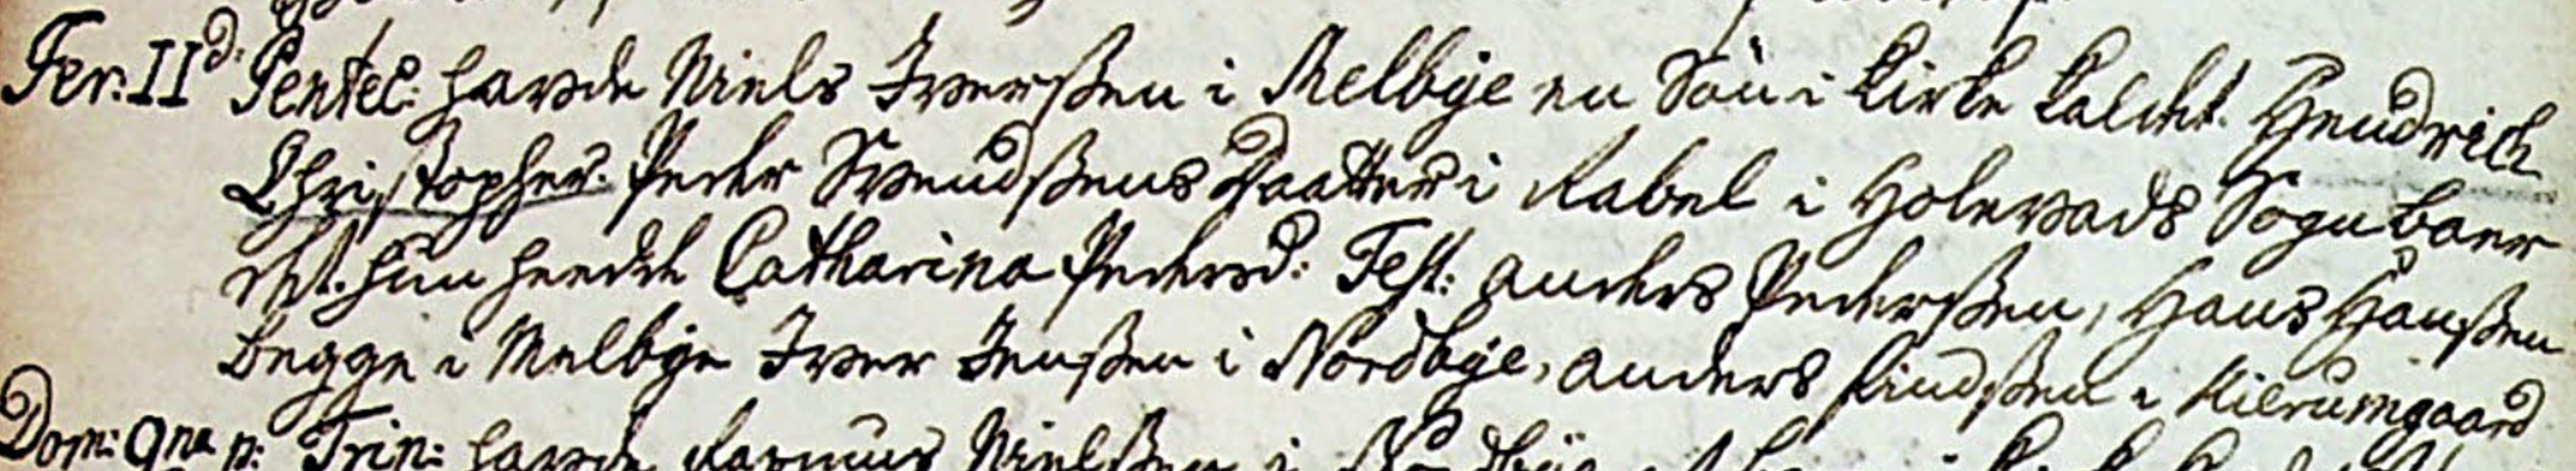 Fer: II d. Pentec: hafde Niels Iverßen i Melbÿe en Sön i Kirke kaldet. Hendrich
Christopher. Peder Svendßens Daatter i Rabel i Holevads Sogn baer
det. hun heedte Catharina Pedersd: Test: Anders Pederßen, Hans Hanßen
begge i Melbÿe Iver Jenßen i Nordbÿe, Anders Knudßen i Kierumgaard
Dom: 9na p: Trin: hafde Rasmus Nielßen i